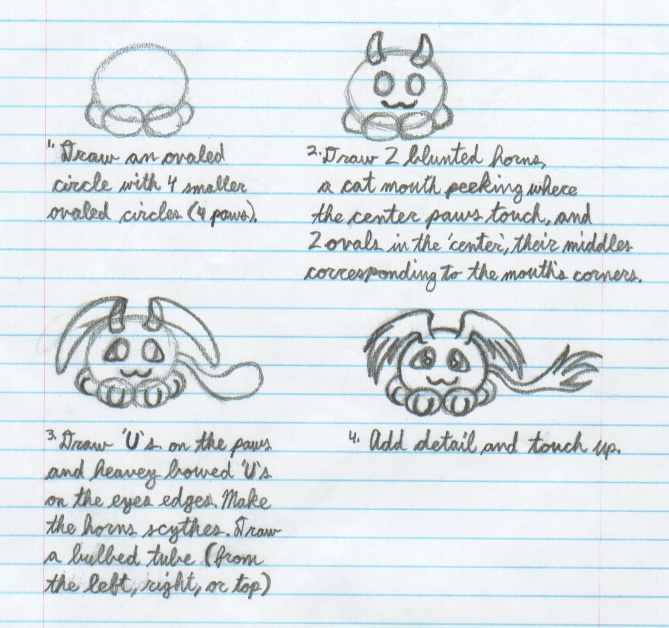 1. Draw an ovaled
circle with 4 smaller
ovaled circles (4 paws).
2. Draw 2 blunted horns,
a cat mouth peeking where
the center paws touch, and
2 ovals in the 'center', their middles
corresponding to the mouth's corners.
3. Draw 'U's on the paws
and heavey bowed 'U's
on the eyes edges. Make
the horns scythes. Draw
a bulbed tube (from
the left, right, or top)
4. Add detail and touch up.